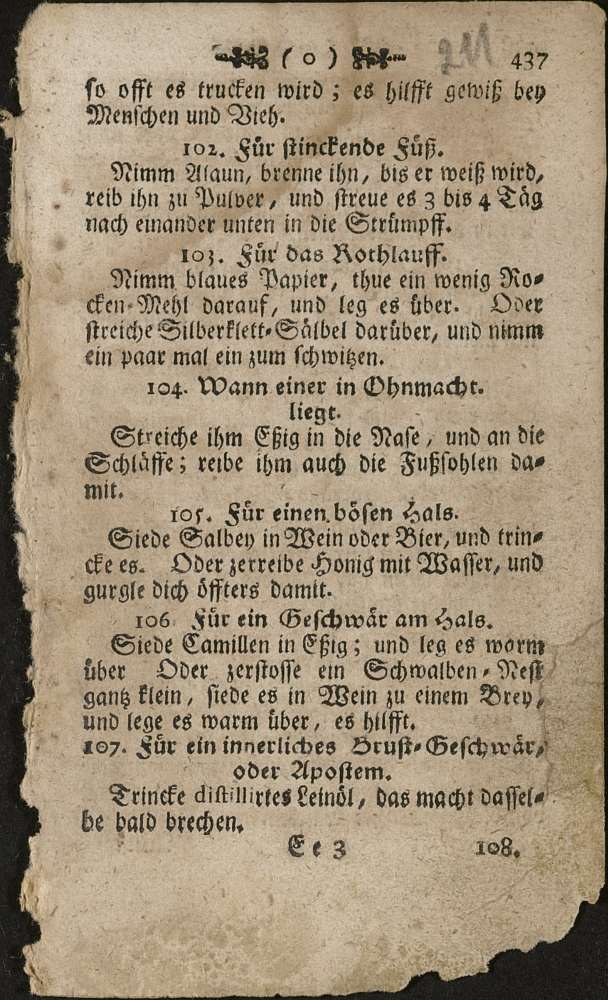 ( 0 ) 211 437
so offt es trucken wird ; es hilfft gewiß bey
Menschen und Vieh.
102. Für stinckende Füß.
Nimm Alaun, brenne ihn, bis er weiß wird,
reib ihn zu Pulver, und streue es 3 bis 4 Täg
nach einander unten in die Strümpff.
103. Für das Rothlauff.
Nimm blaues Papier, thue ein wenig Ro-
cken-Mehl darauf, und leg es über. Oder
streiche Silberklett-Sälbel darüber, und nimm
ein paar mal ein zum schwitzen.
104. Wann einer in Ohnmacht.
liegt.
Streiche ihm Eßig in die Nase, und an die
Schläffe; reibe ihm auch die Fußsohlen da-
mit.
105. Für einen bösen Hals.
Siede Salbey in Wein oder Bier, und trin-
cke es. Oder zerreibe Honig mit Wasser, und
gurgle dich öffters damit.
106 Für ein Geschwär am Hals.
Siede Camillen in Eßig; und leg es warm
über Oder zerstosse ein Schwalben-Nest
gantz klein, siede es in Wein zu einem Brey,
und lege es warm über, es hilfft.
107. Für ein innerliches Brust-Geschwär,
oder Apostem.
Trincke distillirtes Leinöl, das macht dassel-
be bald brechen.
Ee 3 108.